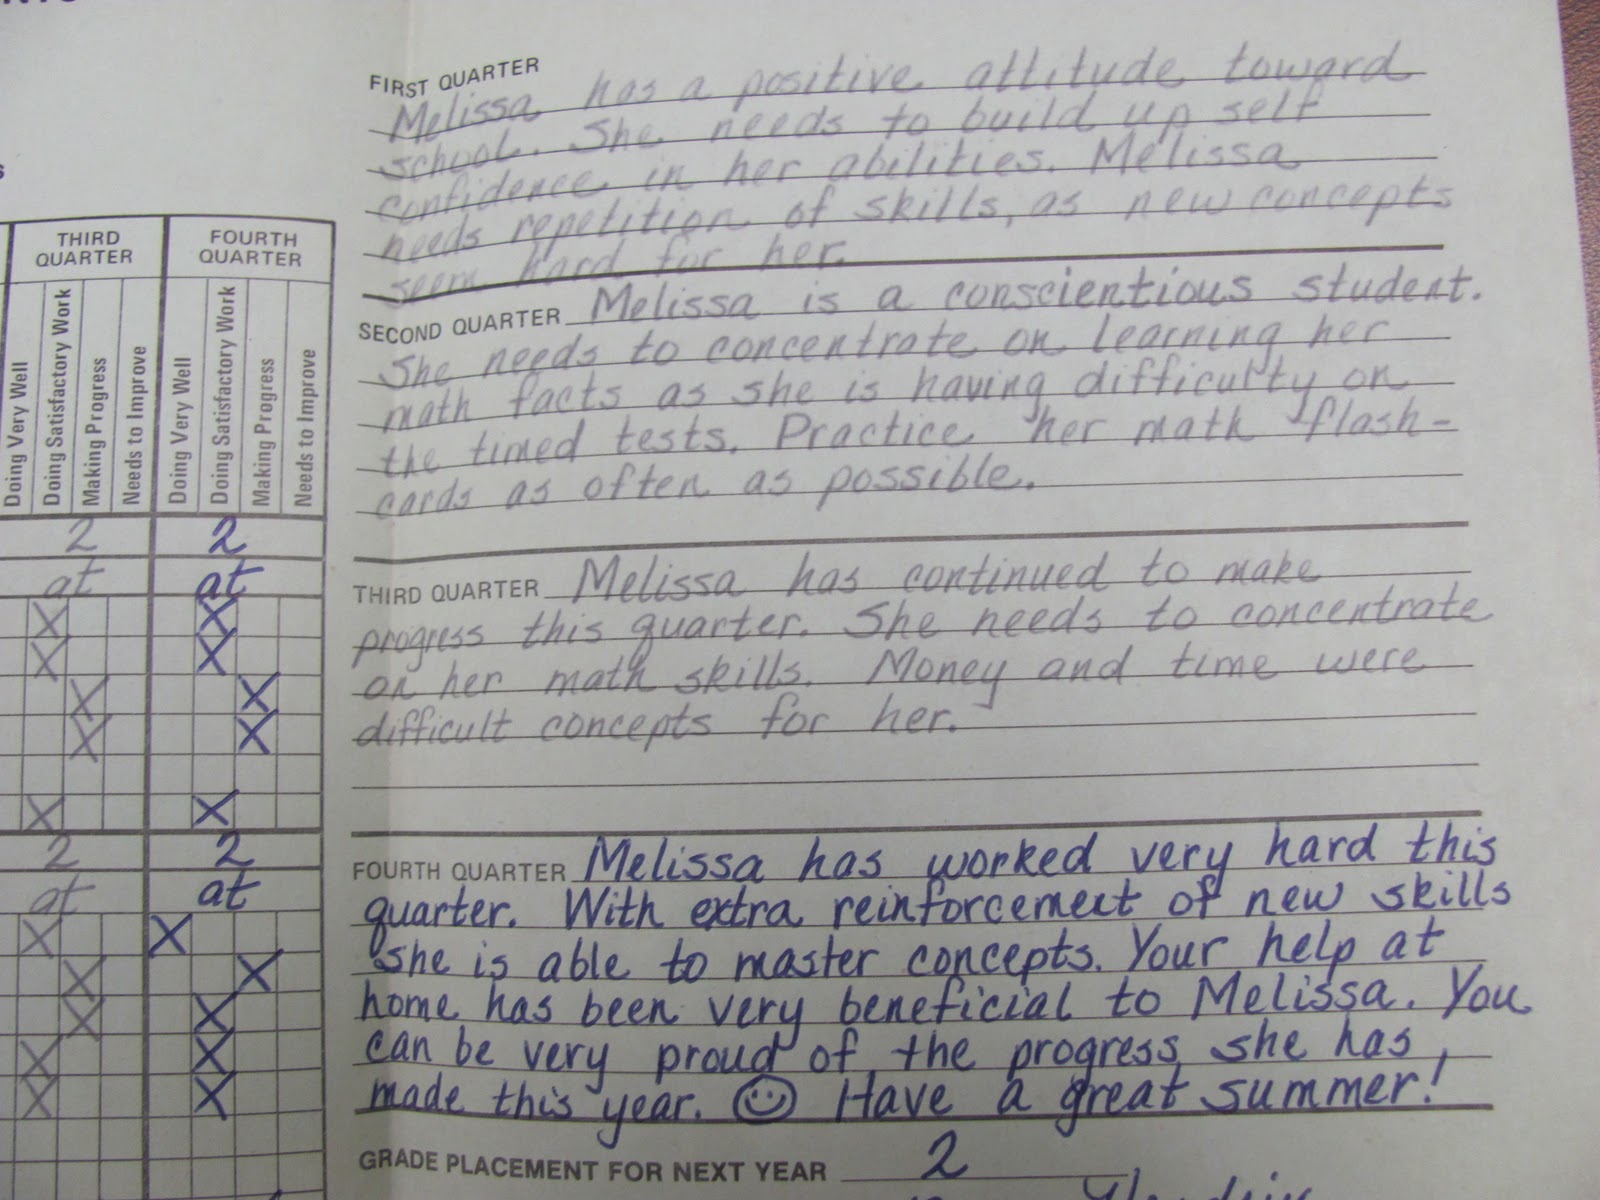 THIRD QUARTER
FOURTH QUARTER
Doing Very Well
Doing Satisfactory Work
Making Progress
Needs to Improve
Doing Very Well
Doing Satisfactory Work
Making Progress
Needs to Improve
2 2
at at
X X
X X
X X
X X
X X
2 2
at at
X X
X X
X X
X X
X X
FIRST QUARTER
Melissa has a positive attitude toward
school. She needs to build up self
confidence in her abilities. Melissa
needs repetition of skills, as new concepts
seem hard for her.
SECOND QUARTER Melissa is a conscientious student.
She needs to concentrate on learning her
math facts as she is having difficulty on
the timed tests. Practice her math flash-
cards as often as possible.
THIRD QUARTER Melissa has continued to make
progress this quarter. She needs to concentrate
on her math skills. Money and time were
difficult concepts for her.
FOURTH QUARTER Melissa has worked very hard this
quarter. With extra reinforcement of new skills
she is able to master concepts. Your help at
home has been very beneficial to Melissa. You
can be very proud of the progress she has
made this year. Have a great summer!
GRADE PLACEMENT FOR NEXT YEAR 2